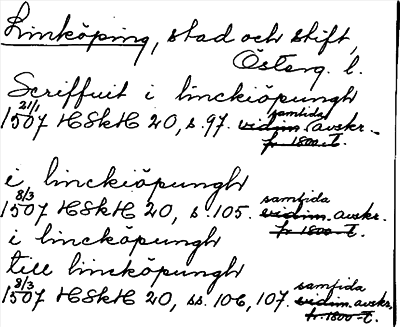 Linköping, stad och stift,
Österg. l.
Scriffuit i linckiöpungh
1507 21/1 HSkH 20, s. 97. vidim. samtida avskr.
fr. 1800-t.
i linckiöpungh
1507 8/3 HSkH 20, s. 105. vidim. samtida avskr.
fr. 1800-t.
i linckiöpungh
till lincköpungh
1507 8/3 HSkH 20, ss. 106, 107. vidim. samtida avskr.
fr. 1800-t.